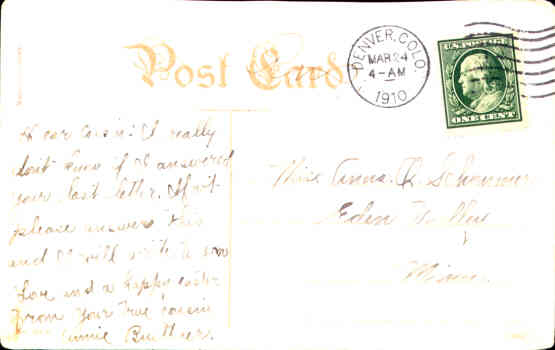 Post Card
DENVER, COLO.
MAR 24
4-AM
1910
U.S. POSTAGE
ONE CENT
Dear Cousin: I really
don't know if I answered
your last letter. If not
please answer this
and I will write to you
Love and a happy easter
From your true cousin
Miss. Anna
Eden
Minn.